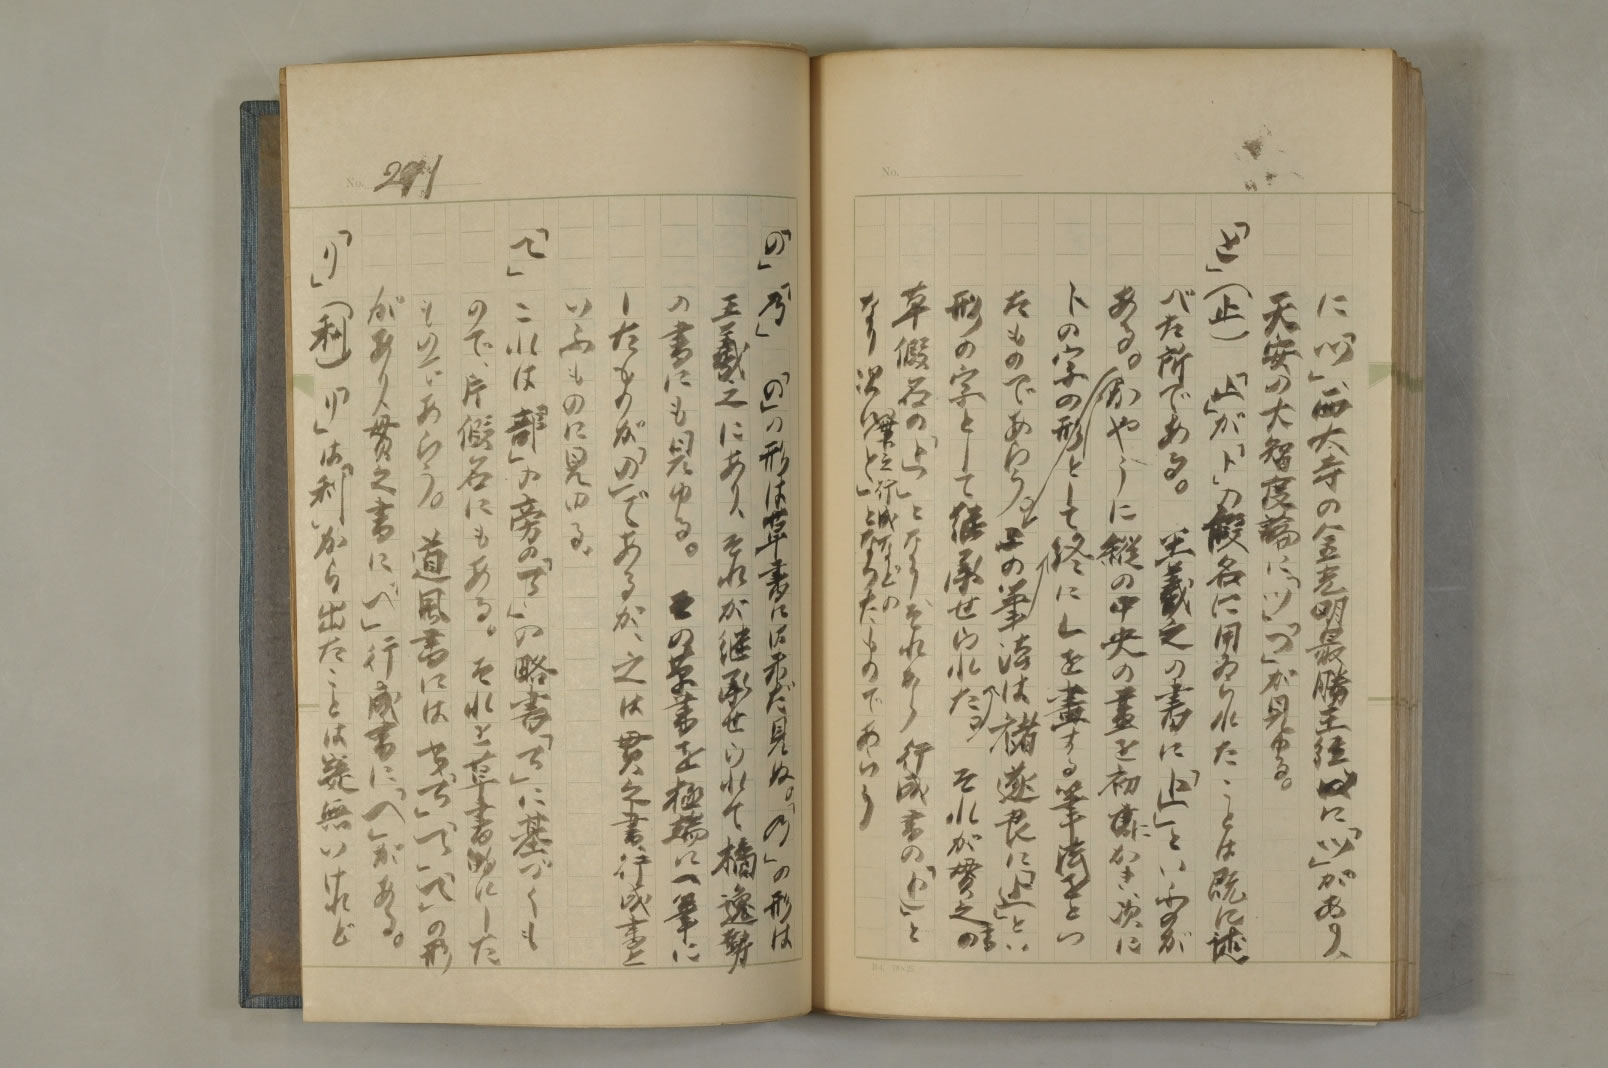 No.
に「ツ」西大寺の金光明最勝王経に「ツ」があり、
天安の大智度論に「ツ」「つ」が見ゆる。
「と」(止)「止」が「ト」の假名に用ゐられたことは既に述
べた所である。王羲之の書に「止」といふのが
ある。かやうに縦の中央の畫を初にかき、次に
トの字の形として終にㄴを畫する筆法をとつ
たものであらう。この筆法は褚遂良に「止」とい
形の字として継承せられた。それが貫之の書
草假名の「止」となりそれから行成書の「止」と
なり次に「と」となつたものであらう
貫之行成などの
No. 271
「の」「乃」「の」の形は草書には未だ見ぬ。「乃」の形は
王羲之にあり、それが継承せられて橘逸勢
の書にも見ゆる。その草書を極端に一筆に
したものが「の」であるが、之は貫之書、行成書と
いふものに見ゆる。
「へ」これは「部」の旁の「阝」の略書「ア」に基づくも
ので、片假名にもある。それを草書的にした
ものであらう。道風書には「へ」の形
があり、貫之書に「へ」行成書に「へ」がある。
「り」(利)「り」は「利」から出たことは疑無いけれど